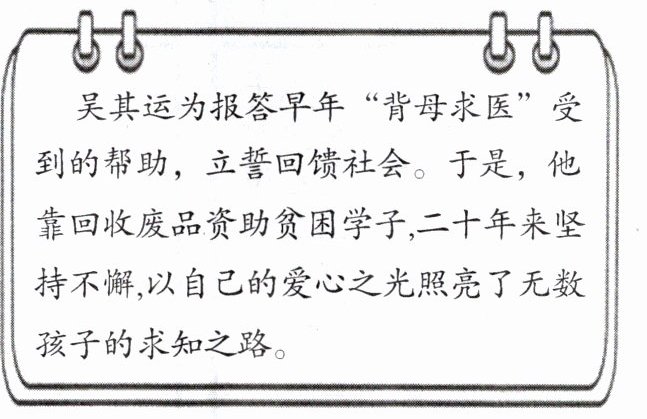 吴其运为报答早年“背母求医”受
到的帮助，立誓回馈社会。于是，他
靠回收废品资助贫困学子,二十年来坚
持不懈,以自己的爱心之光照亮了无数
孩子的求知之路。